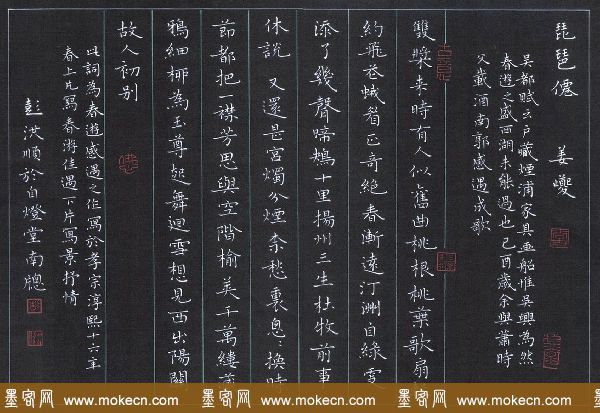 琵琶僊 姜夔
吳都賦云戶藏煙浦家具畫船惟吳興為然
春遊之盛西湖未能過也己酉歲余與蕭時
父載酒南郭感遇成歌
雙槳来時有人似舊曲桃根桃葉歌扇
約飛花蛾眉正奇絕春漸遠汀洲自綠更
添了幾聲啼鴂十里揚州三生杜牧前事
休說 又還是宮燭分煙奈愁裏怱々換時
節都把一襟芳思與空階榆莢千萬縷藏
鴉細柳為玉尊起舞迴雪想見西出陽關
故人初別
此詞為春遊感遇之作寫於孝宗淳熙十六年
春上片寫春遊佳遇下片寫景抒情
彭洪順於自燈堂南牕
墨客网 www.mokecn.com 墨客网 www.mokecn.com 墨客网 www.mokecn.com